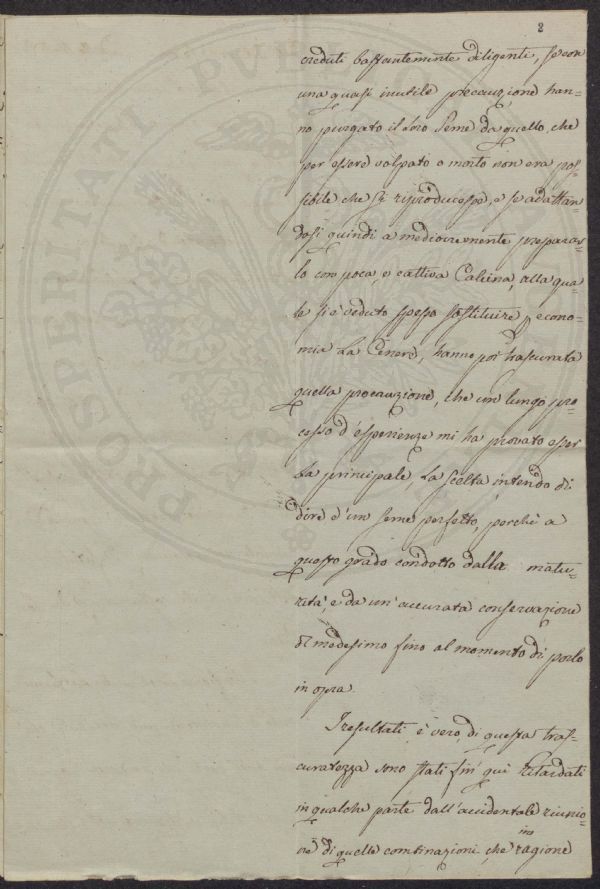 2
creduti bastantemente diligenti, se con
una quasi inutile precauzione han=
no purgato il loro Seme da quello, che
per essere volpato o morto non era pos=
sibile che si riproducesse, e se adattan=
dosi quindi a mediocremente preparar=
lo con poca, e cattiva Calcina, alla qua=
le si è veduto spesso sostituire p econo=
mia La Cenere, hanno poi trascurata
quella precauzione, che un lungo pro=
cesso d'esperienze mi ha provato esser
La principale, La scelta intendo di
dire d'un seme perfetto, perchè a
questo grado condotto dalla matu=
rità, e da un'accurata conservazione
del medesimo fino al momento di porlo
in opra.
I resultati è vero, di questa tras=
curatezza sono stati fin' qui ritardati
in qualche parte dall'accidentale riunio=
ne di quelle combinazioni, che in ragione
PROSPERITATI PUBLICAE